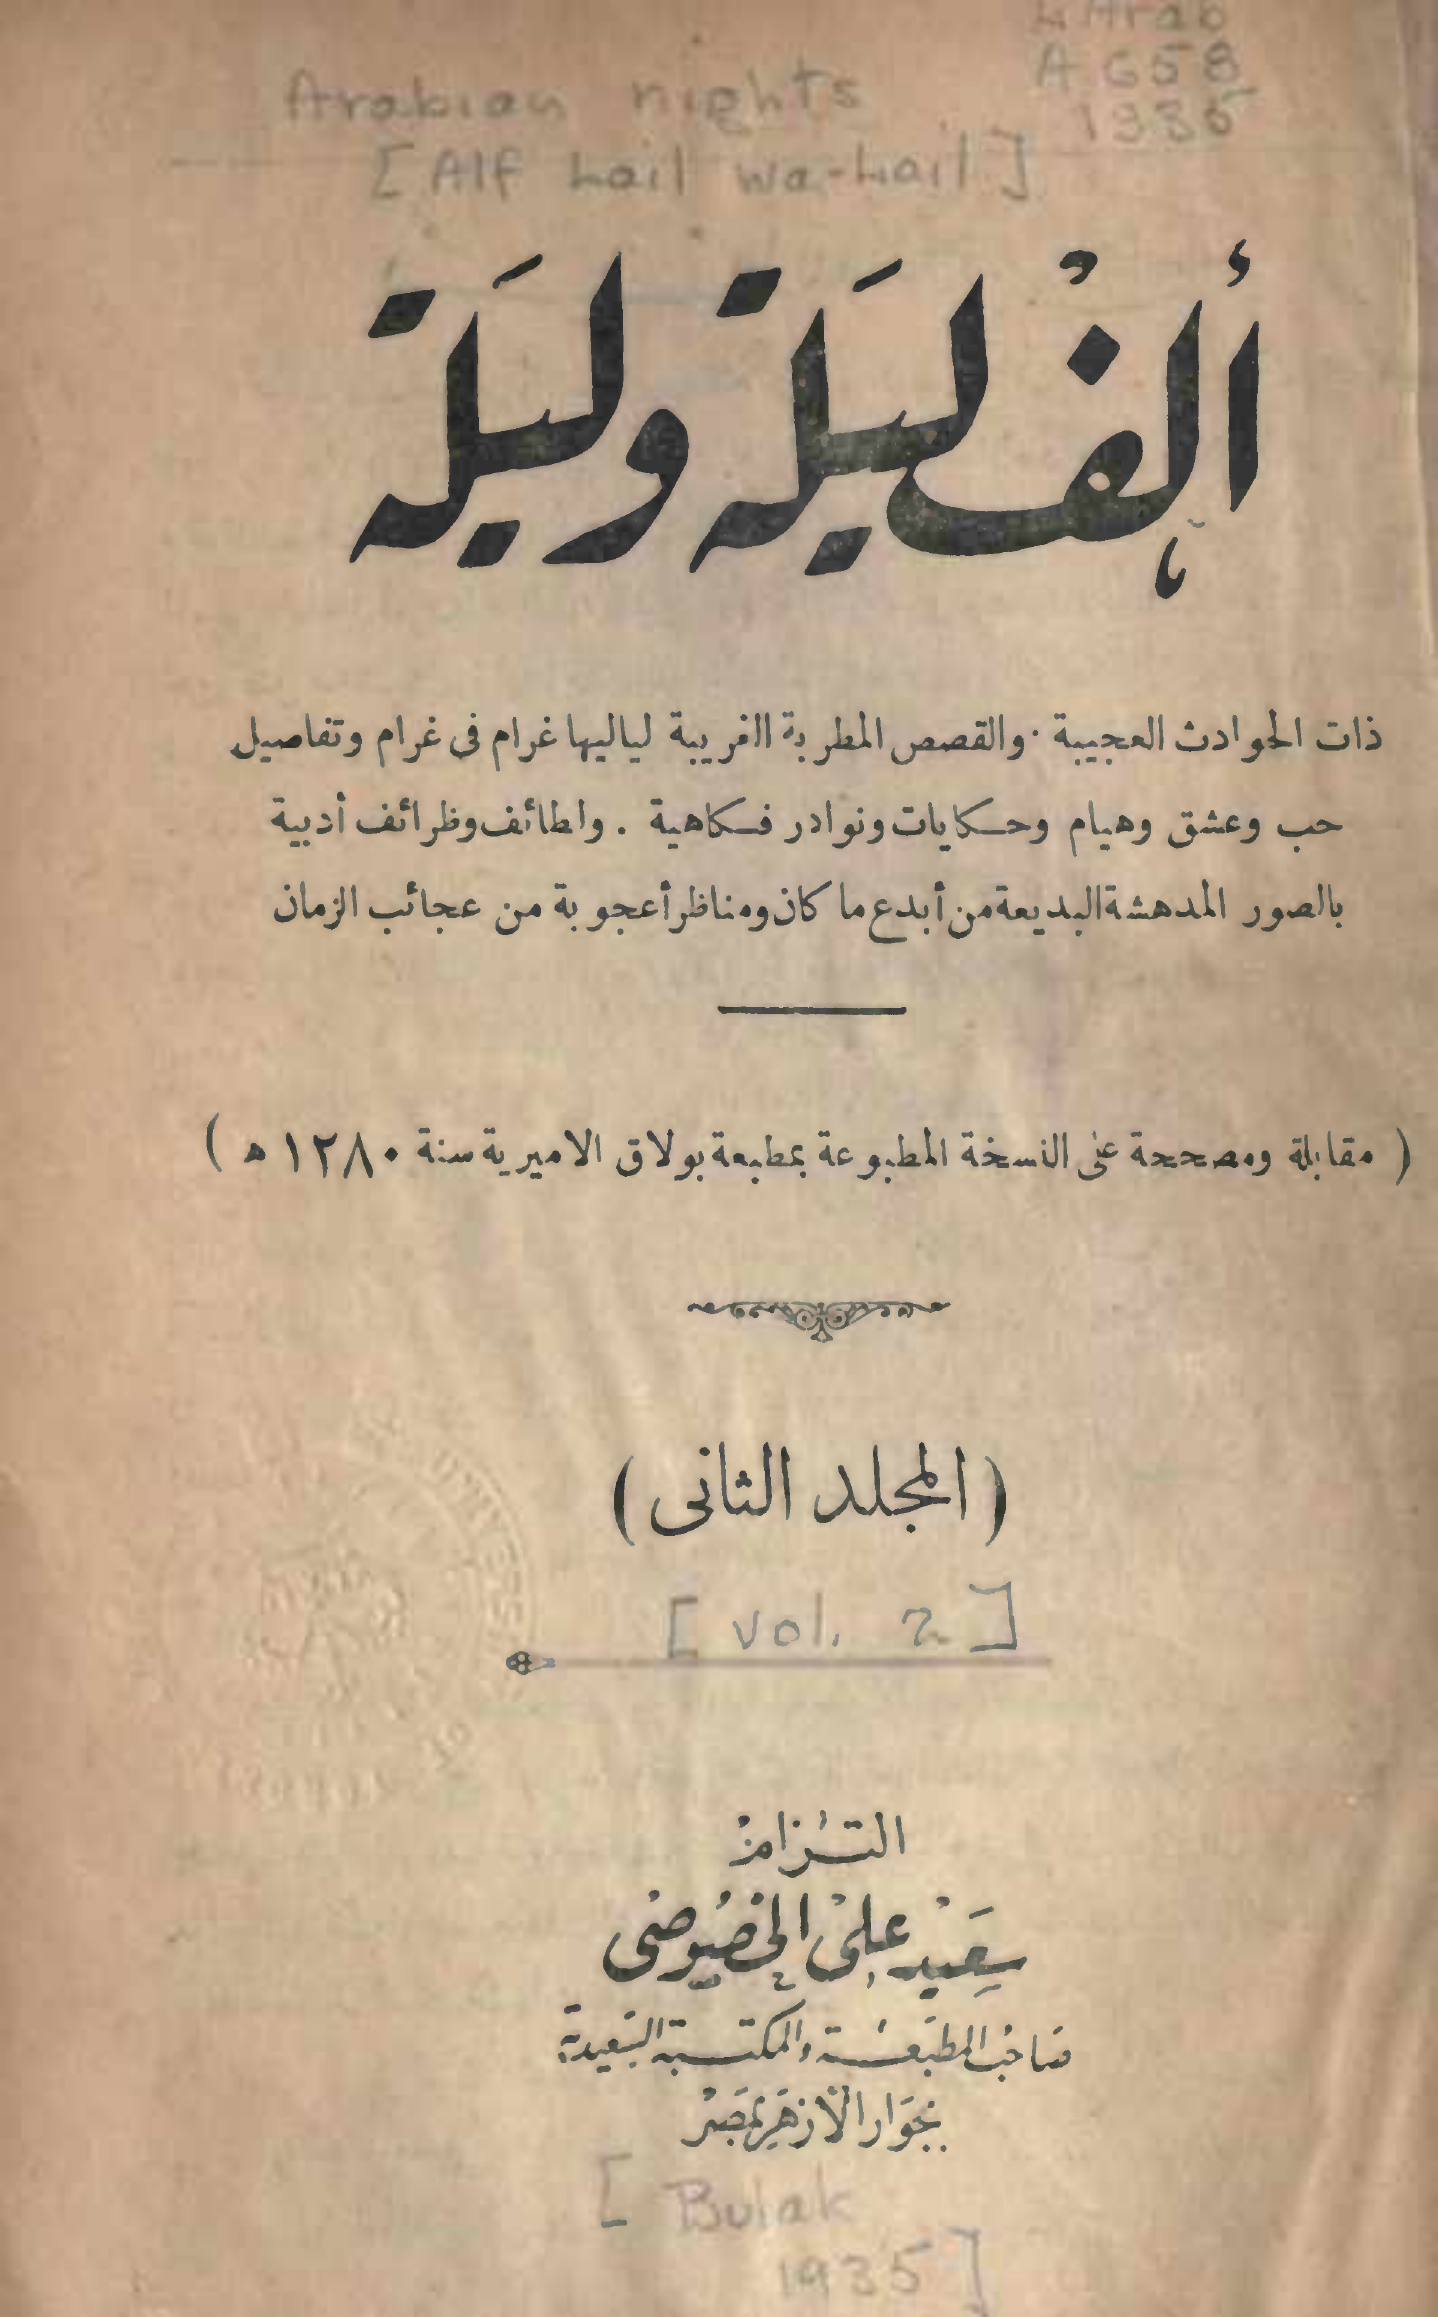 L Arab
A 658
1935
Arabian nights
[Alf Lail wa-Lail]
ألفْ ليَلة وليَلة
ذات الحوادث العجيبة . والقصص المطربة الغريبة لياليها غرام فى غرام وتفاصيل
حب وعشق وهيام وحكايات ونوادر فكاهية . ولطائف وظرائف أدبية
بالصور المدهشة البديعة من أبدع ما كان ومناظر أعجوبة من عجائب الزمان
( مقابلة ومصححة على النسخة المطبوعة بمطبعة بولاق الاميرية سنة ١٢٨٠ ه )
( المجلد الثانى )
[ vol. 2 ]
التزام
سعيد على الخصوصى
صاحب المطبعة والمكتبة السعيدية
بجوار الأزهر بمصر
[ Bulak
1935 ]